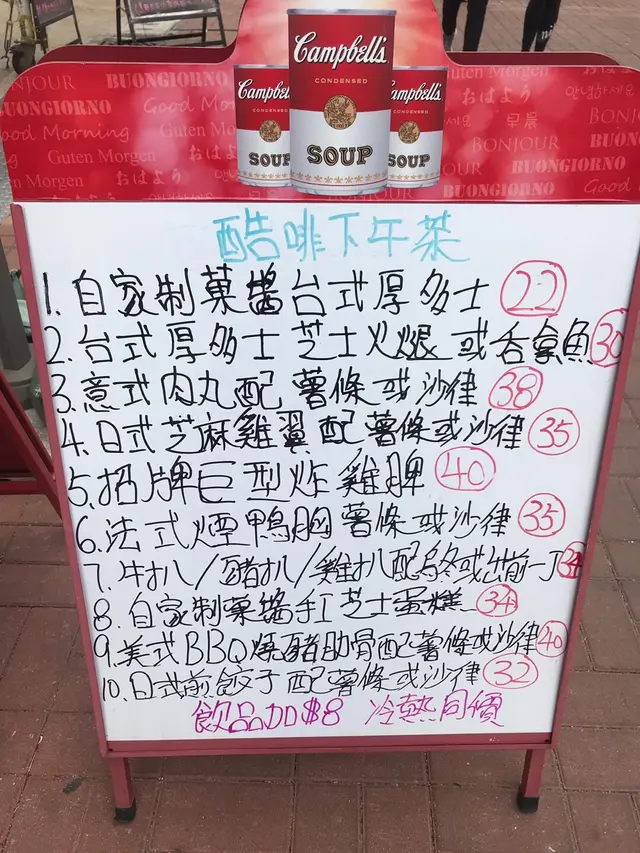 Campbell's
CONDENSED
SOUP
Campbell's
CONDENSED
SOUP
Campbell's
CONDENSED
SOUP
BONJOUR BUONGIORNO
BUONGIORNO Good Morning
Good Morning Guten Morgen
Guten Morgen おはよう
おはよう BUONGIORNO
Guten Morgen
おはよう 안녕하세요
早晨 BONJOUR
BONJOUR BUONGIORNO
BUONGIORNO Good
酷啡下午茶
1. 自家制菓醬台式厚多士 22
2. 台式厚多士芝士火腿或吞拿魚 30
3. 意式肉丸配薯條或沙律 38
4. 日式芝麻雞翼配薯條或沙律 35
5. 招牌巨型炸雞脾 40
6. 法式煙鴨胸薯條或沙律 35
7. 牛扒/豬扒/雞扒配烏冬或出前一丁 34
8. 自家制菓醬手工芝士蛋糕 34
9. 美式BBQ燒豬肋骨配薯條或沙律 40
10. 日式煎餃子配薯條或沙律 32
飲品加$8 冷熱同價